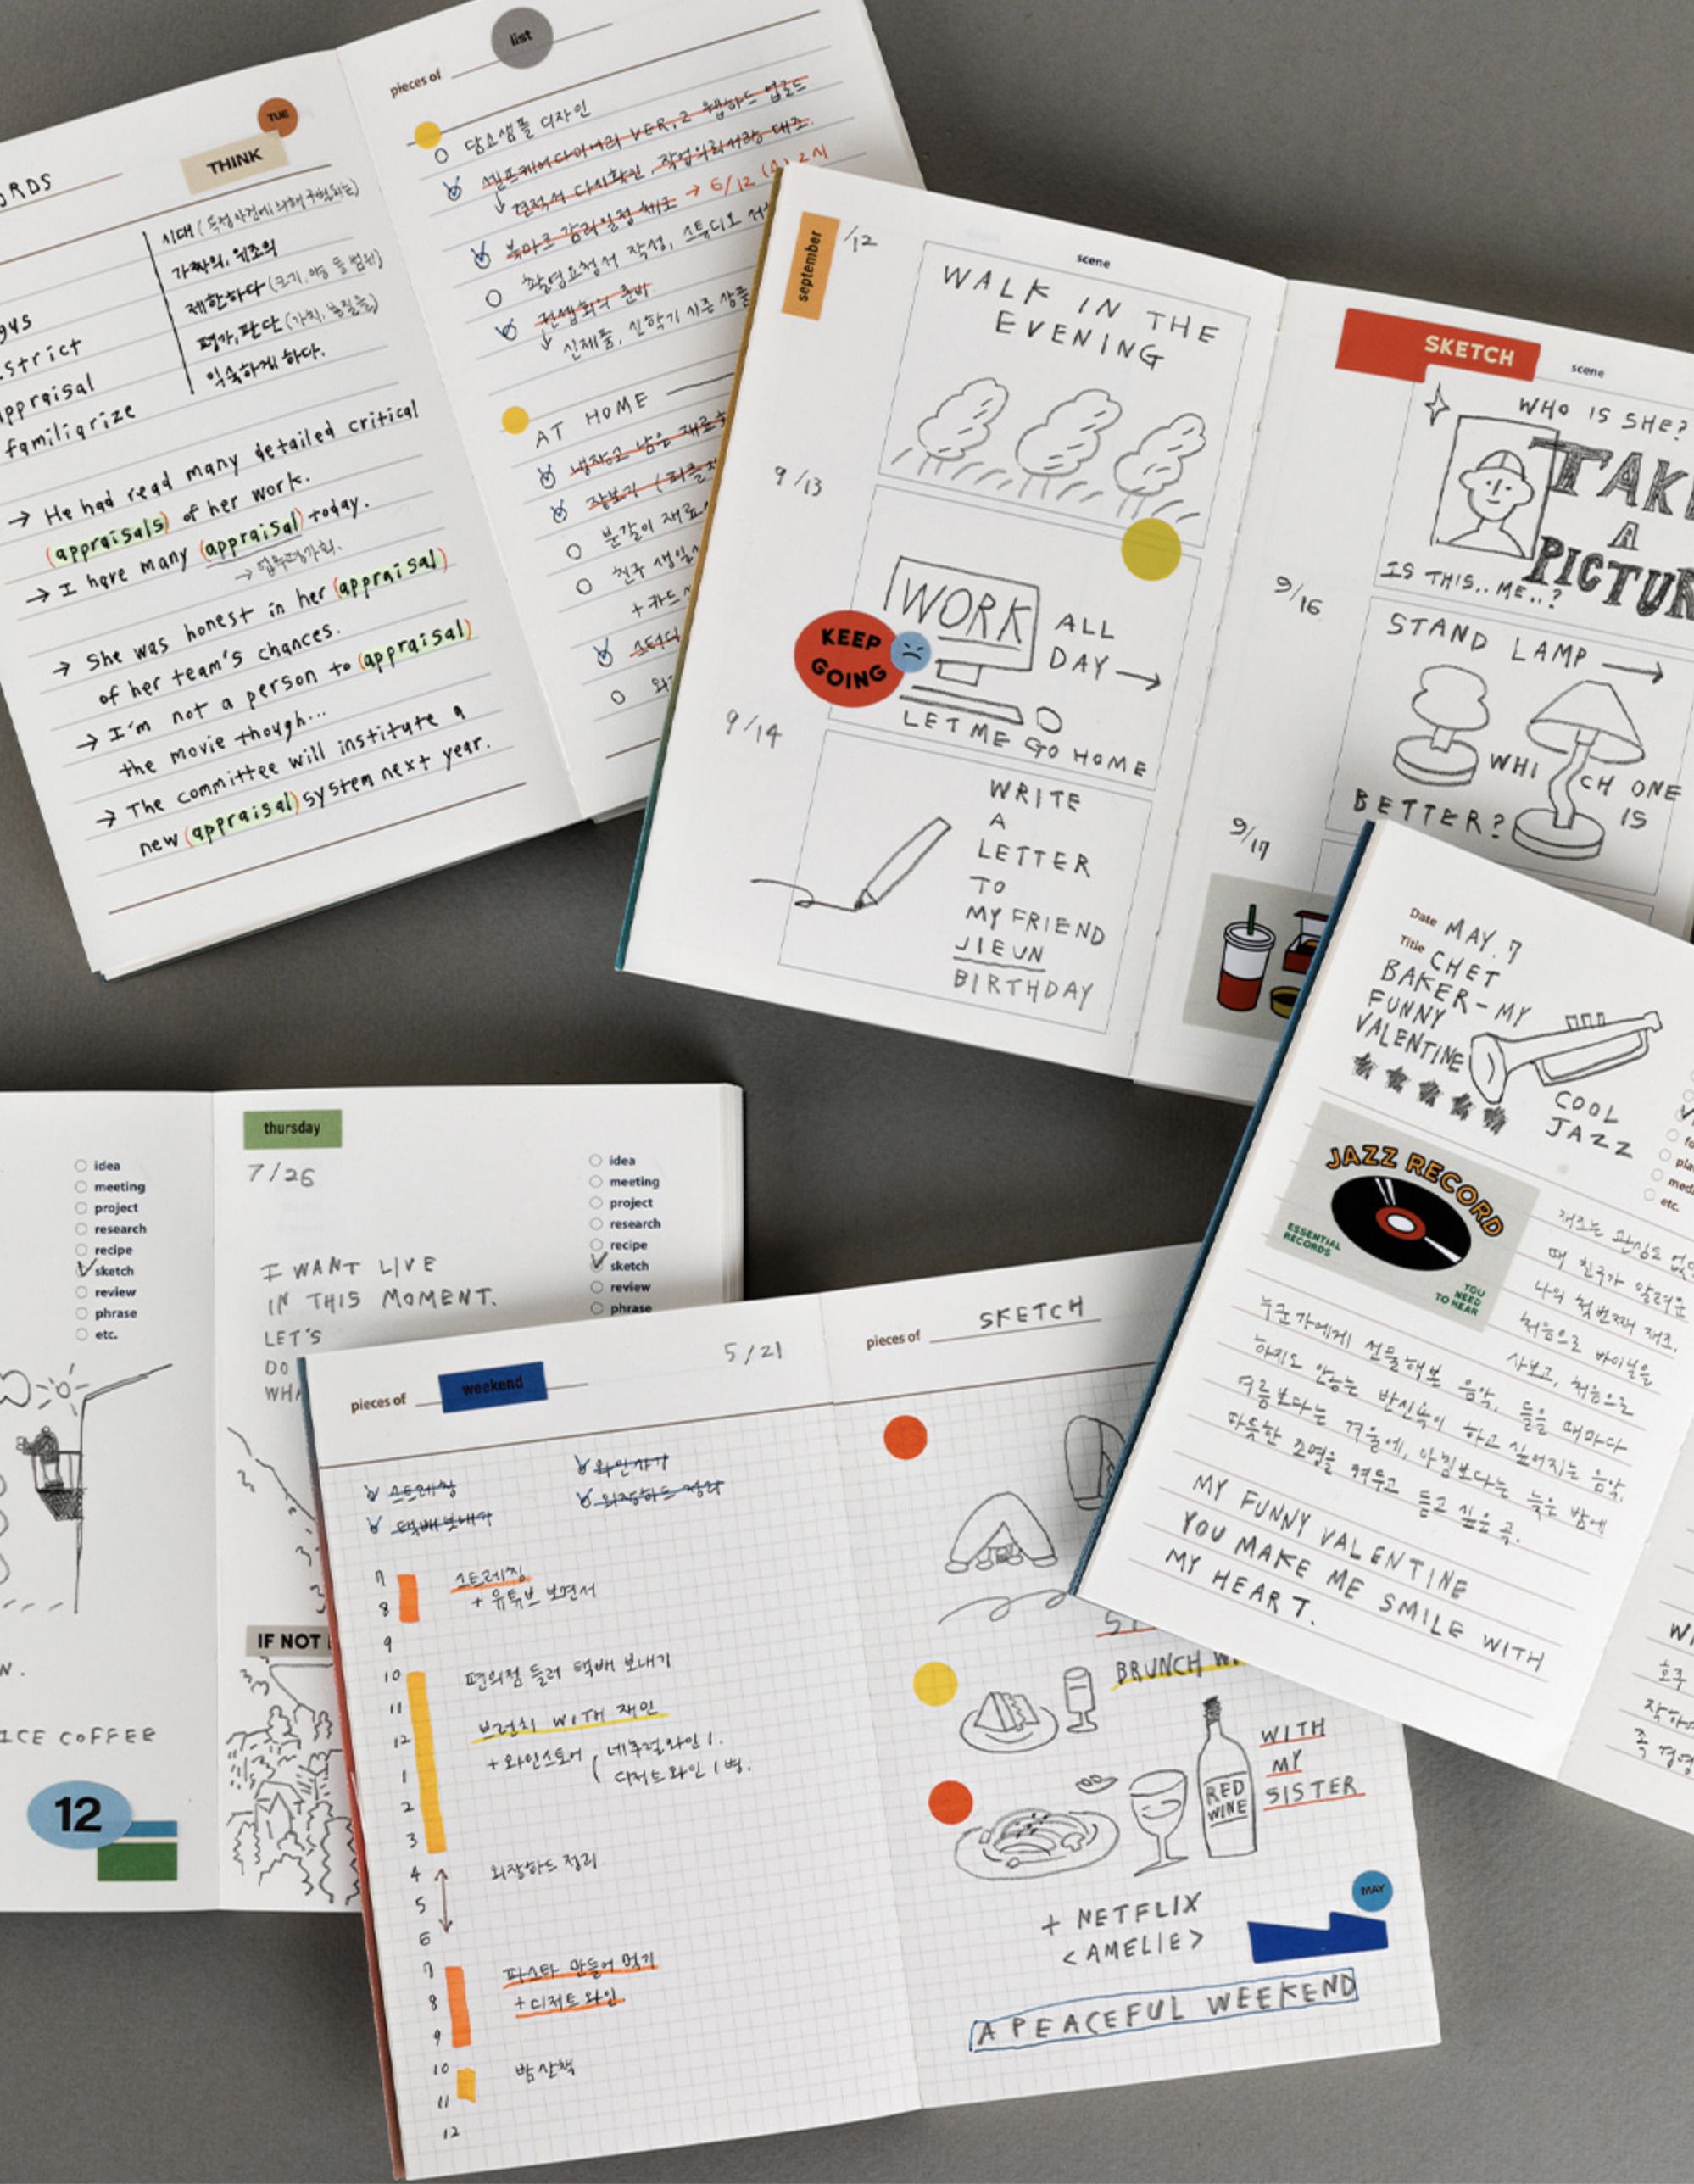 TUE
THINK
시대 (특정 사건에 의해 구분되는)
가짜의, 위조의
제한하다 (크기, 양 등 범위)
평가, 판단 (가치, 품질을)
익숙하게 하다.
appraisal
familiarize
→ He had read many detailed critical
(appraisals) of her work.
→ I have many (appraisal) today.
→ 업무평가회.
→ She was honest in her (appraisal)
of her team's chances.
→ I'm not a person to (appraisal)
the movie though...
→ The committee will institute a
new (appraisal) system next year.
pieces of list
담요샘플 디자인
셀프케어다이어리 VER.2 웹하드 업로드
↳ 견적서 다시확인, 작업의뢰서랑 대조.
북마크 감리일정 체크 → 6/12 (수) 2시
촬영요청서 작성, 스튜디오
컨셉회의 준비
↳ 신제품, 신학기 시즌 상품
AT HOME
냉장고 남은 재료
장보기
분갈이 재료
친구 생일
+ 카드
september
/12
scene
WALK IN THE
EVENING
9/13
WORK
ALL
DAY →
KEEP
GOING
LET ME GO HOME
9/14
WRITE
A
LETTER
TO
MY FRIEND
JIEUN
BIRTHDAY
SKETCH
scene
WHO IS SHE?
TAKE
A
PICTUR
IS THIS.. ME..?
9/16
STAND LAMP →
WHICH ONE
IS
BETTER?
9/17
Date MAY. 7
Title CHET
BAKER - MY
FUNNY
VALENTINE
COOL
JAZZ
etc.
JAZZ RECORD
ESSENTIAL
RECORDS
YOU
NEED
TO HEAR
재즈는 관심도 없
때 친구가 알려준
나의 첫번째 재즈.
처음으로 바이닐을
사보고, 처음으로
누군가에게 선물해본 음악. 들을 때마다
하지도 않는 반신욕이 하고 싶어지는 음악.
여름보다는 겨울에, 아침보다는 늦은 밤에
따뜻한 조명을 켜두고 듣고 싶은 곡.
MY FUNNY VALENTINE
YOU MAKE ME SMILE WITH
MY HEART.
idea
meeting
project
research
recipe
sketch
review
phrase
etc.
ICE COFFEE
12
thursday
7/26
idea
meeting
project
research
recipe
sketch
review
phrase
I WANT LIVE
IN THIS MOMENT.
LET'S
DO
IF NOT
pieces of weekend
5/21
스트레칭
와인사기
택배 보내기
외장하드 정리
7
8
9
10
11
12
1
2
3
4
5
6
7
8
9
10
11
12
스트레칭
+ 유튜브 보면서
편의점 들러 택배 보내기
브런치 WITH 재인
+ 와인스토어 ( 네추럴와인 1.
디저트와인 1병.
외장하드 정리
파스타 만들어 먹기
+ 디저트와인
밤 산책
pieces of SKETCH
BRUNCH
RED
WINE
WITH
MY
SISTER
+ NETFLIX
<AMELIE>
MAY
A PEACEFUL WEEKEND